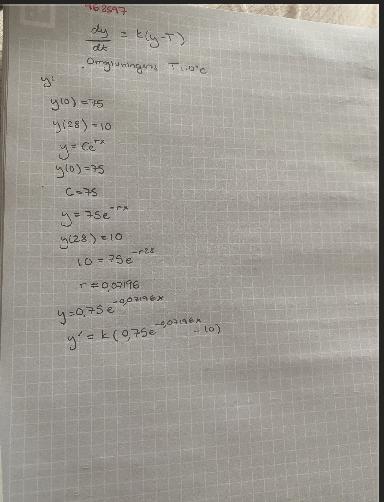 468597
dy/dt = k(y-T)
Omgivningens
y'
y(0) = 75
y(28) = 10
y = Ce^rx
y(0) = 75
C = 75
y = 75e^-rx
y(28) = 10
10 = 75e^-r28
r = 0,07196
y = 0,75e^-0,07196x
y' = k(0,75e^-0,07196x - 10)